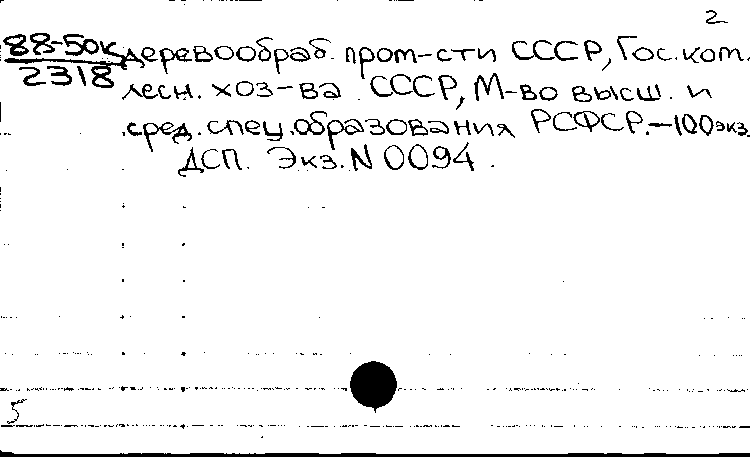 2
88-50к деревообраб. пром-сти СССР, Гос. ком.
2318 лесн. хоз-ва СССР, М-во высш. и
сред. спец. образования РСФСР. - 100 экз.
ДСП. Экз. N 0094.
5